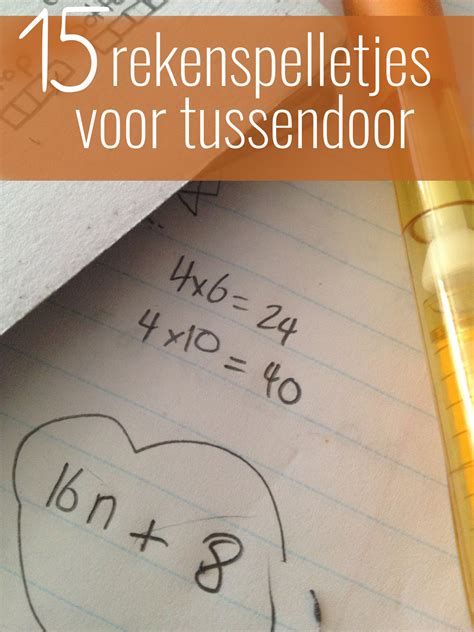 15 rekenspelletjes
voor tussendoor
4x6=24
4x10=40
16n + 8